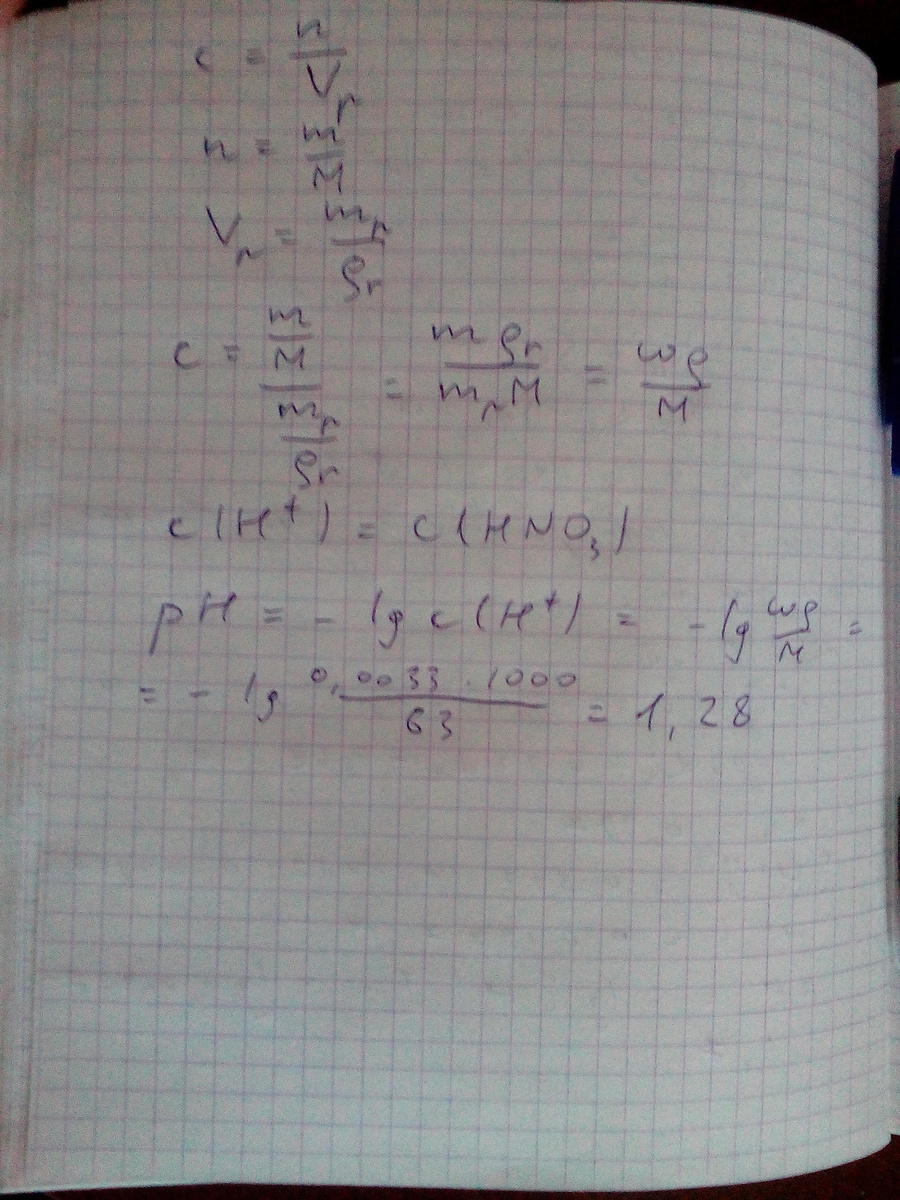 c = n/Vr
n = m/M
Vr = mr/ρr
c = (m/M)/(mr/ρr) = mρr/mrM = ωρ/M
c(H⁺) = c(HNO₃)
pH = - lg c(H⁺) = - lg ωρ/M =
= - lg 0,0033 · 1000/63 = 1,28